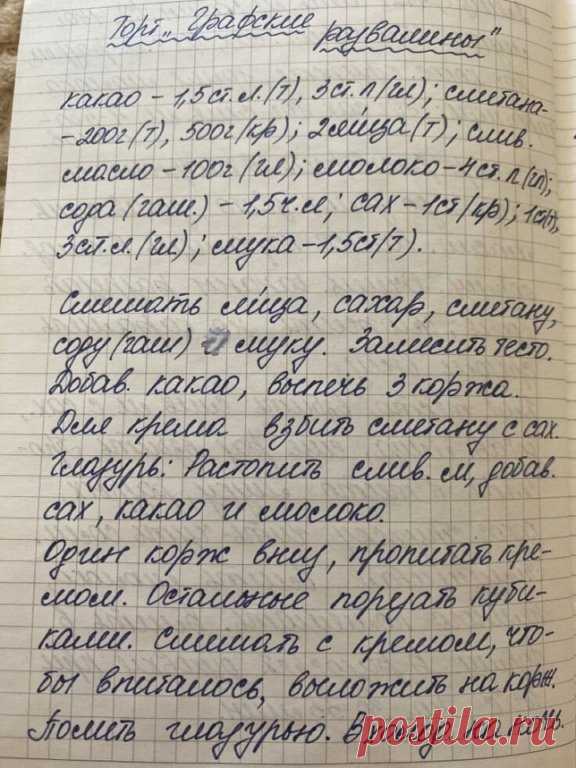 Торт „Графские
развалины"
какао – 1,5 ст.л.(т), 3 ст.л(гл); сметана-
- 200г(т), 500г(кр); 2 яйца(т); слив.
масло – 100г(гл); молоко – 4 ст.л(гл);
сода (гаш.) – 1,5 ч.л; сах – 1 ст(кр); 1 ст(т),
3 ст.л.(гл); мука – 1,5 ст(т).
Смешать яйца, сахар, сметану,
соду (гаш) и муку. Замесить тесто.
Добав. какао, выпечь 3 коржа.
Для крема взбить сметану с сах.
Глазурь: Растопить слив. м, добав.
сах, какао и молоко.
Один корж вниз, пропитать кре-
мом. Остальные порезать куби-
ками. Смешать с кремом, что-
бы впиталось, выложить на корж.
Полить глазурью. В на
postila.ru